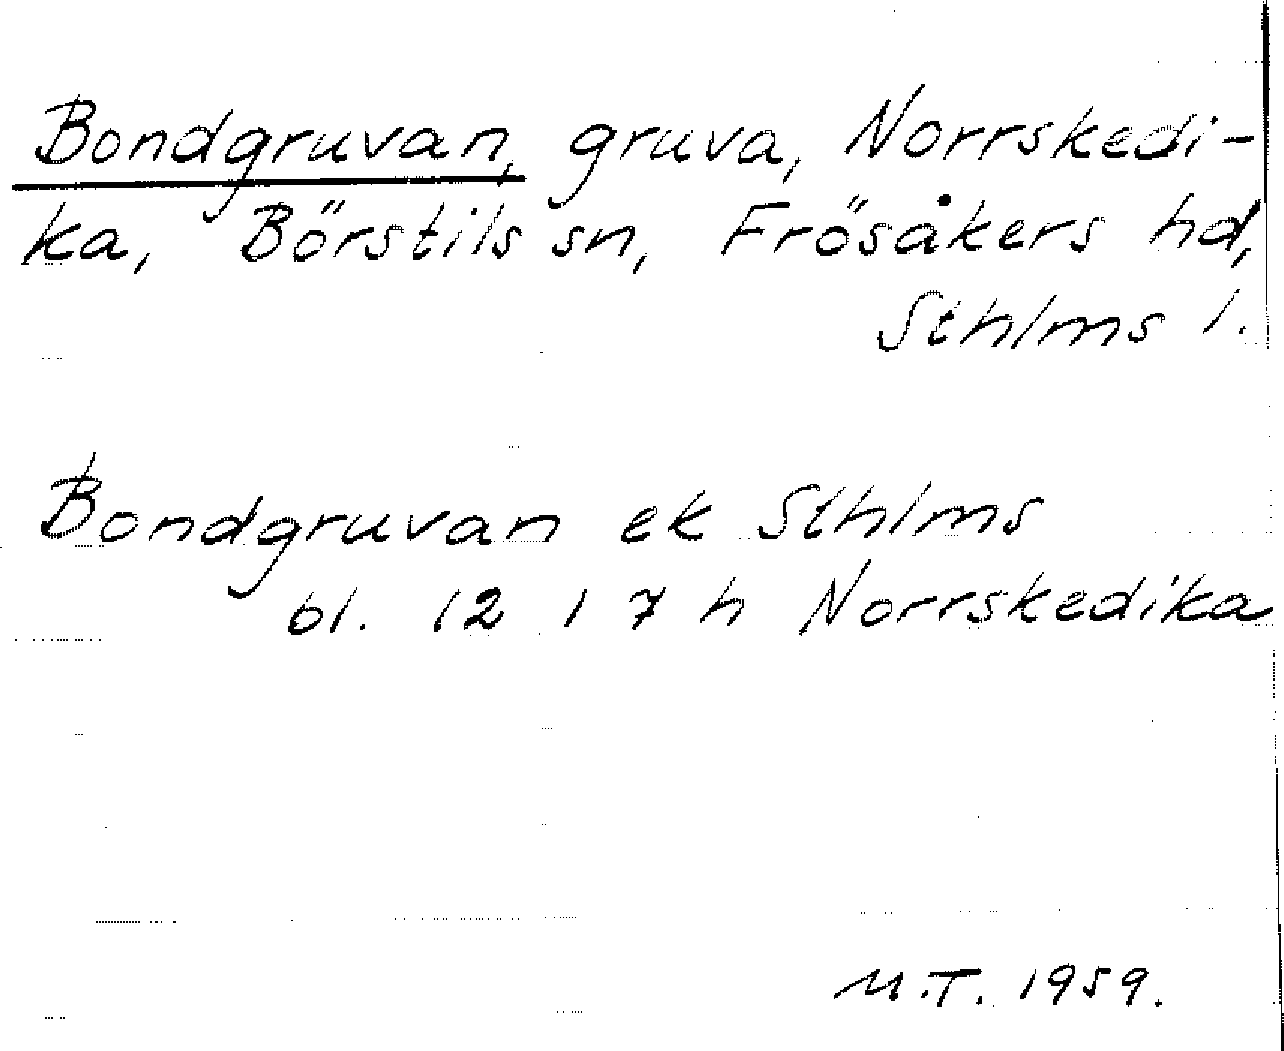 Bondgruvan, gruva, Norrskedi-
ka, Börstils sn, Frösåkers hd,
Sthlms l.
Bondgruvan ek Sthlms
bl. 12 I 7 h Norrskedika
M.T. 1959.